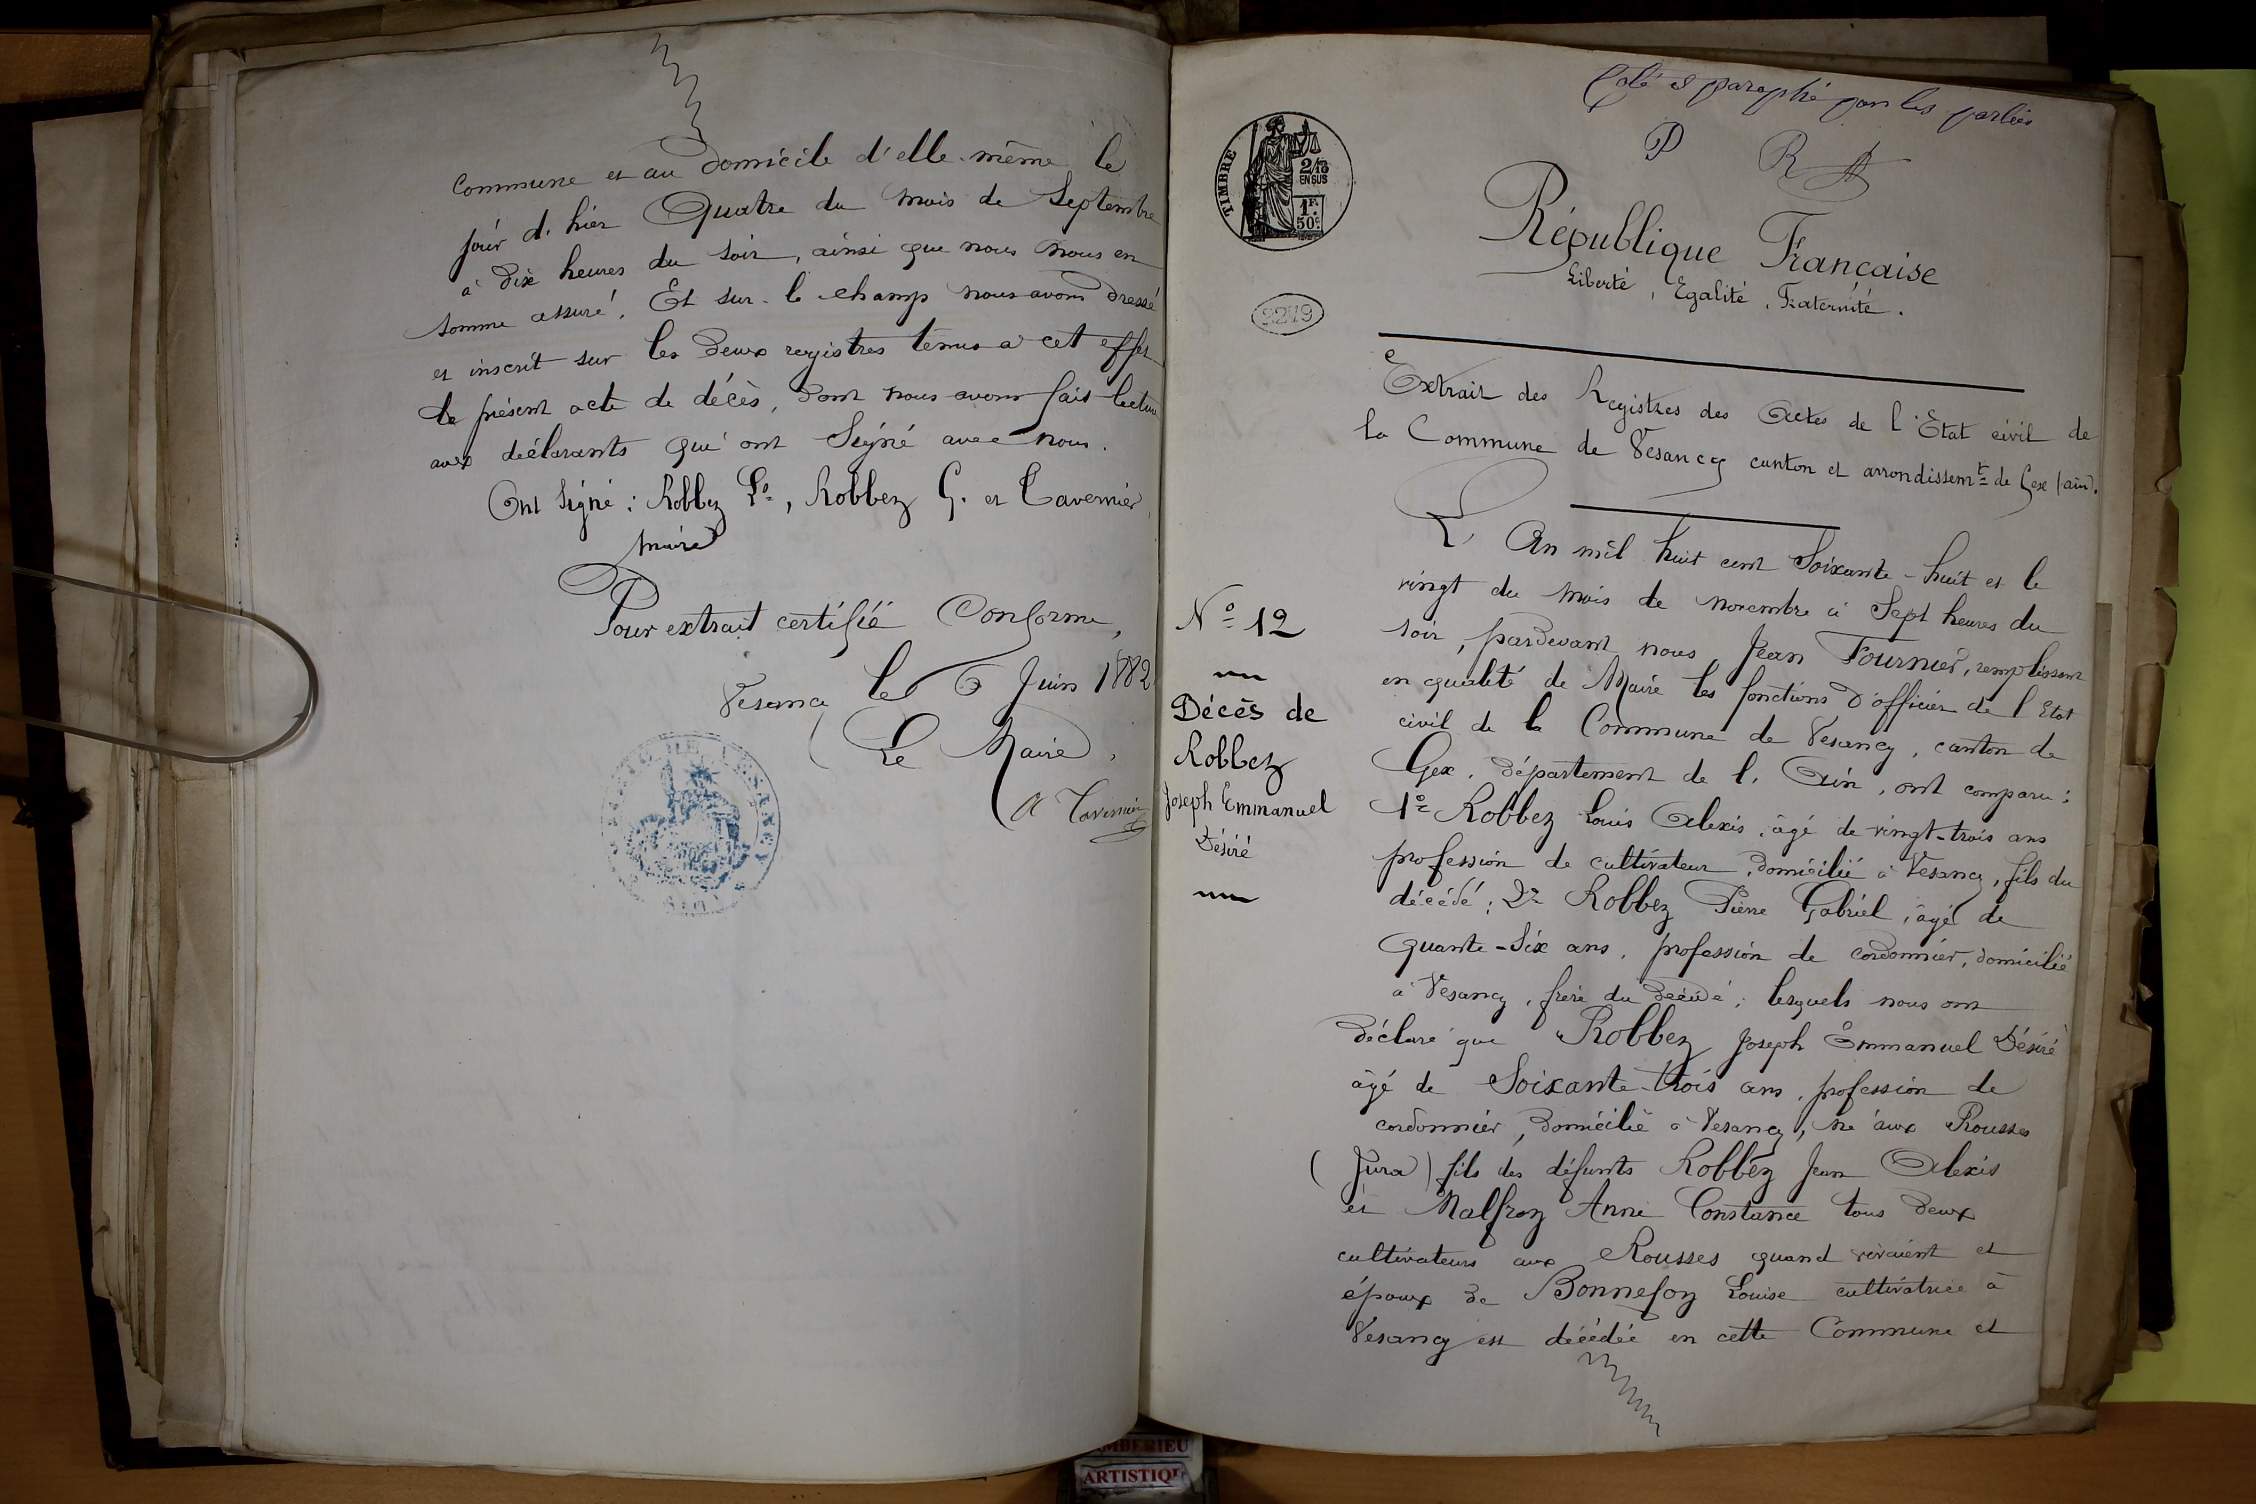 commune et au domicile d'elle-même le
jour d'hier Quatre du mois de Septembre
à dix heures du soir, ainsi que nous nous en
somme assuré. Et sur-le champ nous avons dressé
et inscrit sur les deux registres tenus a cet effet
le présent acte de décès, dont nous avons fait lecture
aux déclarants qui ont Signé avec nous.
Ont Signé : Robbez Ls, Robbez G. et Tavernier,
maire
Pour extrait certifié Conforme,
Vesancy le 6 Juin 1882
Le Maire,
A Tavernier
MAIRIE DE VESANCY
(AIN)
Coté et paraphé par les parties
P R
TIMBRE
2/10
EN SUS
1F.
50c.
2279
République Française
Liberté, Egalité, Fraternité.
Extrait des Registres des Actes de l'Etat civil de
la Commune de Vesancy canton et arrondissemt de Gex (ain).
N° 12
Décès de
Robbez
Joseph Emmanuel
Désiré
L'An mil huit cent Soixante-huit et le
vingt du mois de novembre à Sept heures du
soir, pardevant nous Jean Fournier, remplissant
en qualité de Maire les fonctions d'officier de l'Etat
civil de la Commune de Vesancy, canton de
Gex, département de l'Ain, ont comparu :
1° Robbez Louis Alexis, âgé de vingt-trois ans
profession de cultivateur, domicilié à Vesancy, fils du
décédé ; 2° Robbez Pierre Gabriel, âgé de
quante-Six ans, profession de cordonnier, domicilié
à Vesancy, frère du décédé ; lesquels nous ont
déclaré que Robbez Joseph Emmanuel Désiré
âgé de Soixante-trois ans, profession de
cordonnier, domicilié à Vesancy, né aux Rousses
(Jura) fils des défunts Robbez Jean Alexis
et Malfroy Anne Constance tous deux
cultivateurs aux Rousses quand vivaient et
époux de Bonnefoy Louise cultivatrice à
Vesancy est décédée en cette Commune et
AMBERIEU
ARTISTIQU